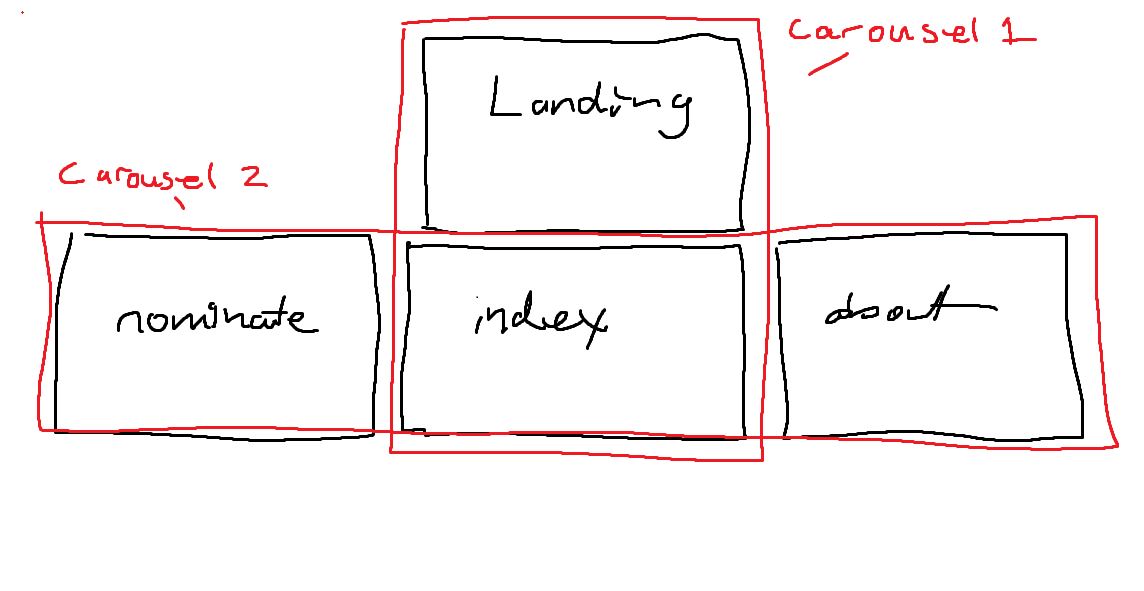 Carousel 1
Landing
Carousel 2
nominate
index
about